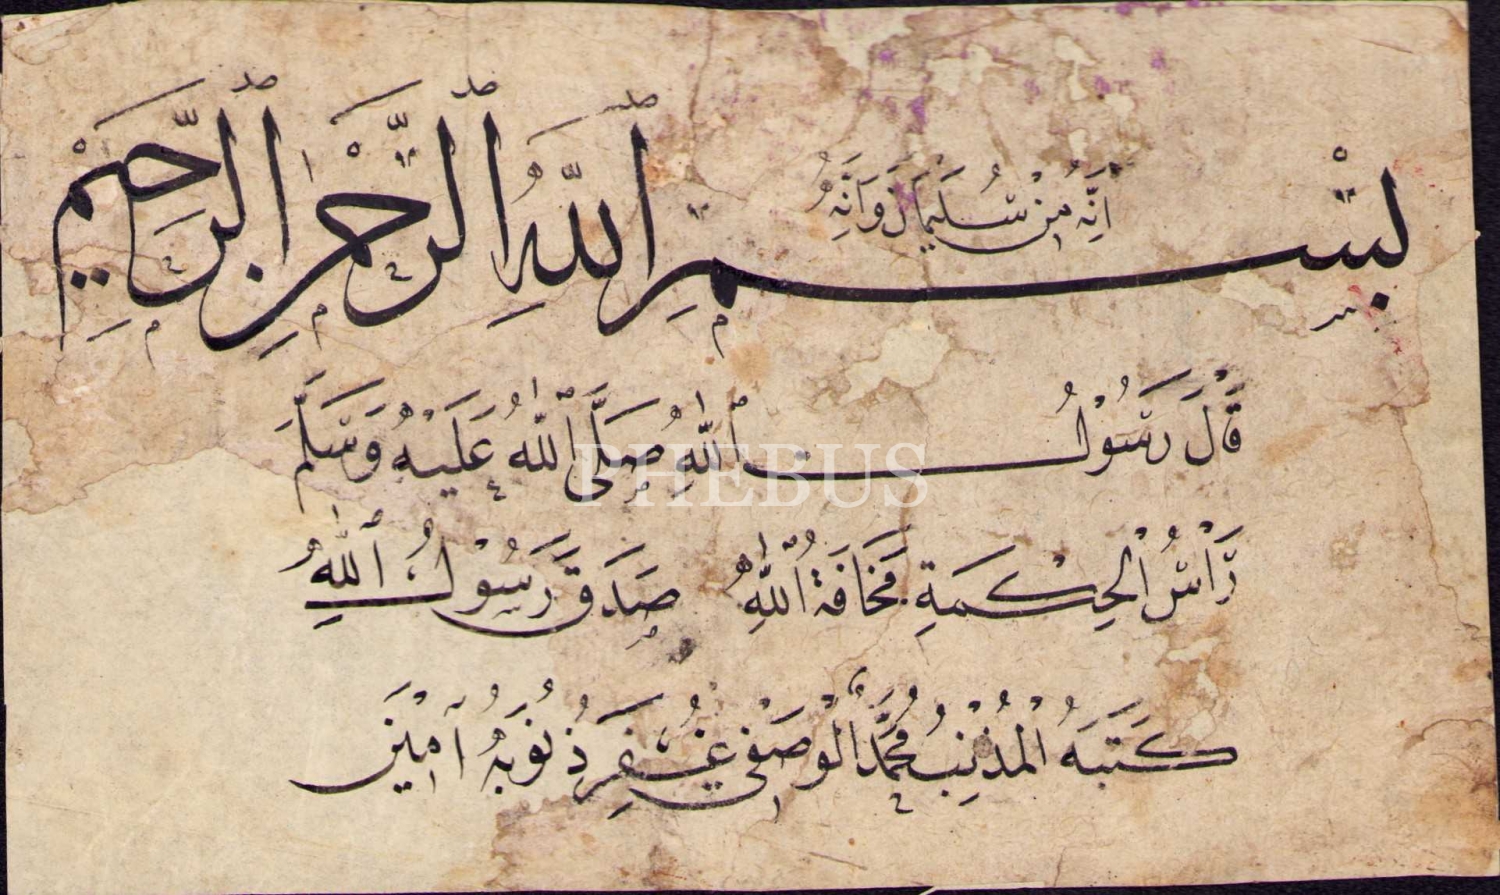 إِنَّهُ مِنْ سُلَيْمَانَ وَإِنَّهُ
بِسْمِ ٱللهِ ٱلرَّحْمٰنِ ٱلرَّحِيمِ
قَالَ رَسُولُ ٱللهِ صَلَّى ٱللهُ عَلَيْهِ وَسَلَّمَ
رَأْسُ الْحِكْمَةِ مَخَافَةُ ٱللهِ صَدَقَ رَسُولُ ٱللهِ
كَتَبَهُ الْمُذْنِبُ مُحَمَّدُ الْوَصْفِي غُفِرَ ذُنُوبُهُ آمِينَ
PHEBUS